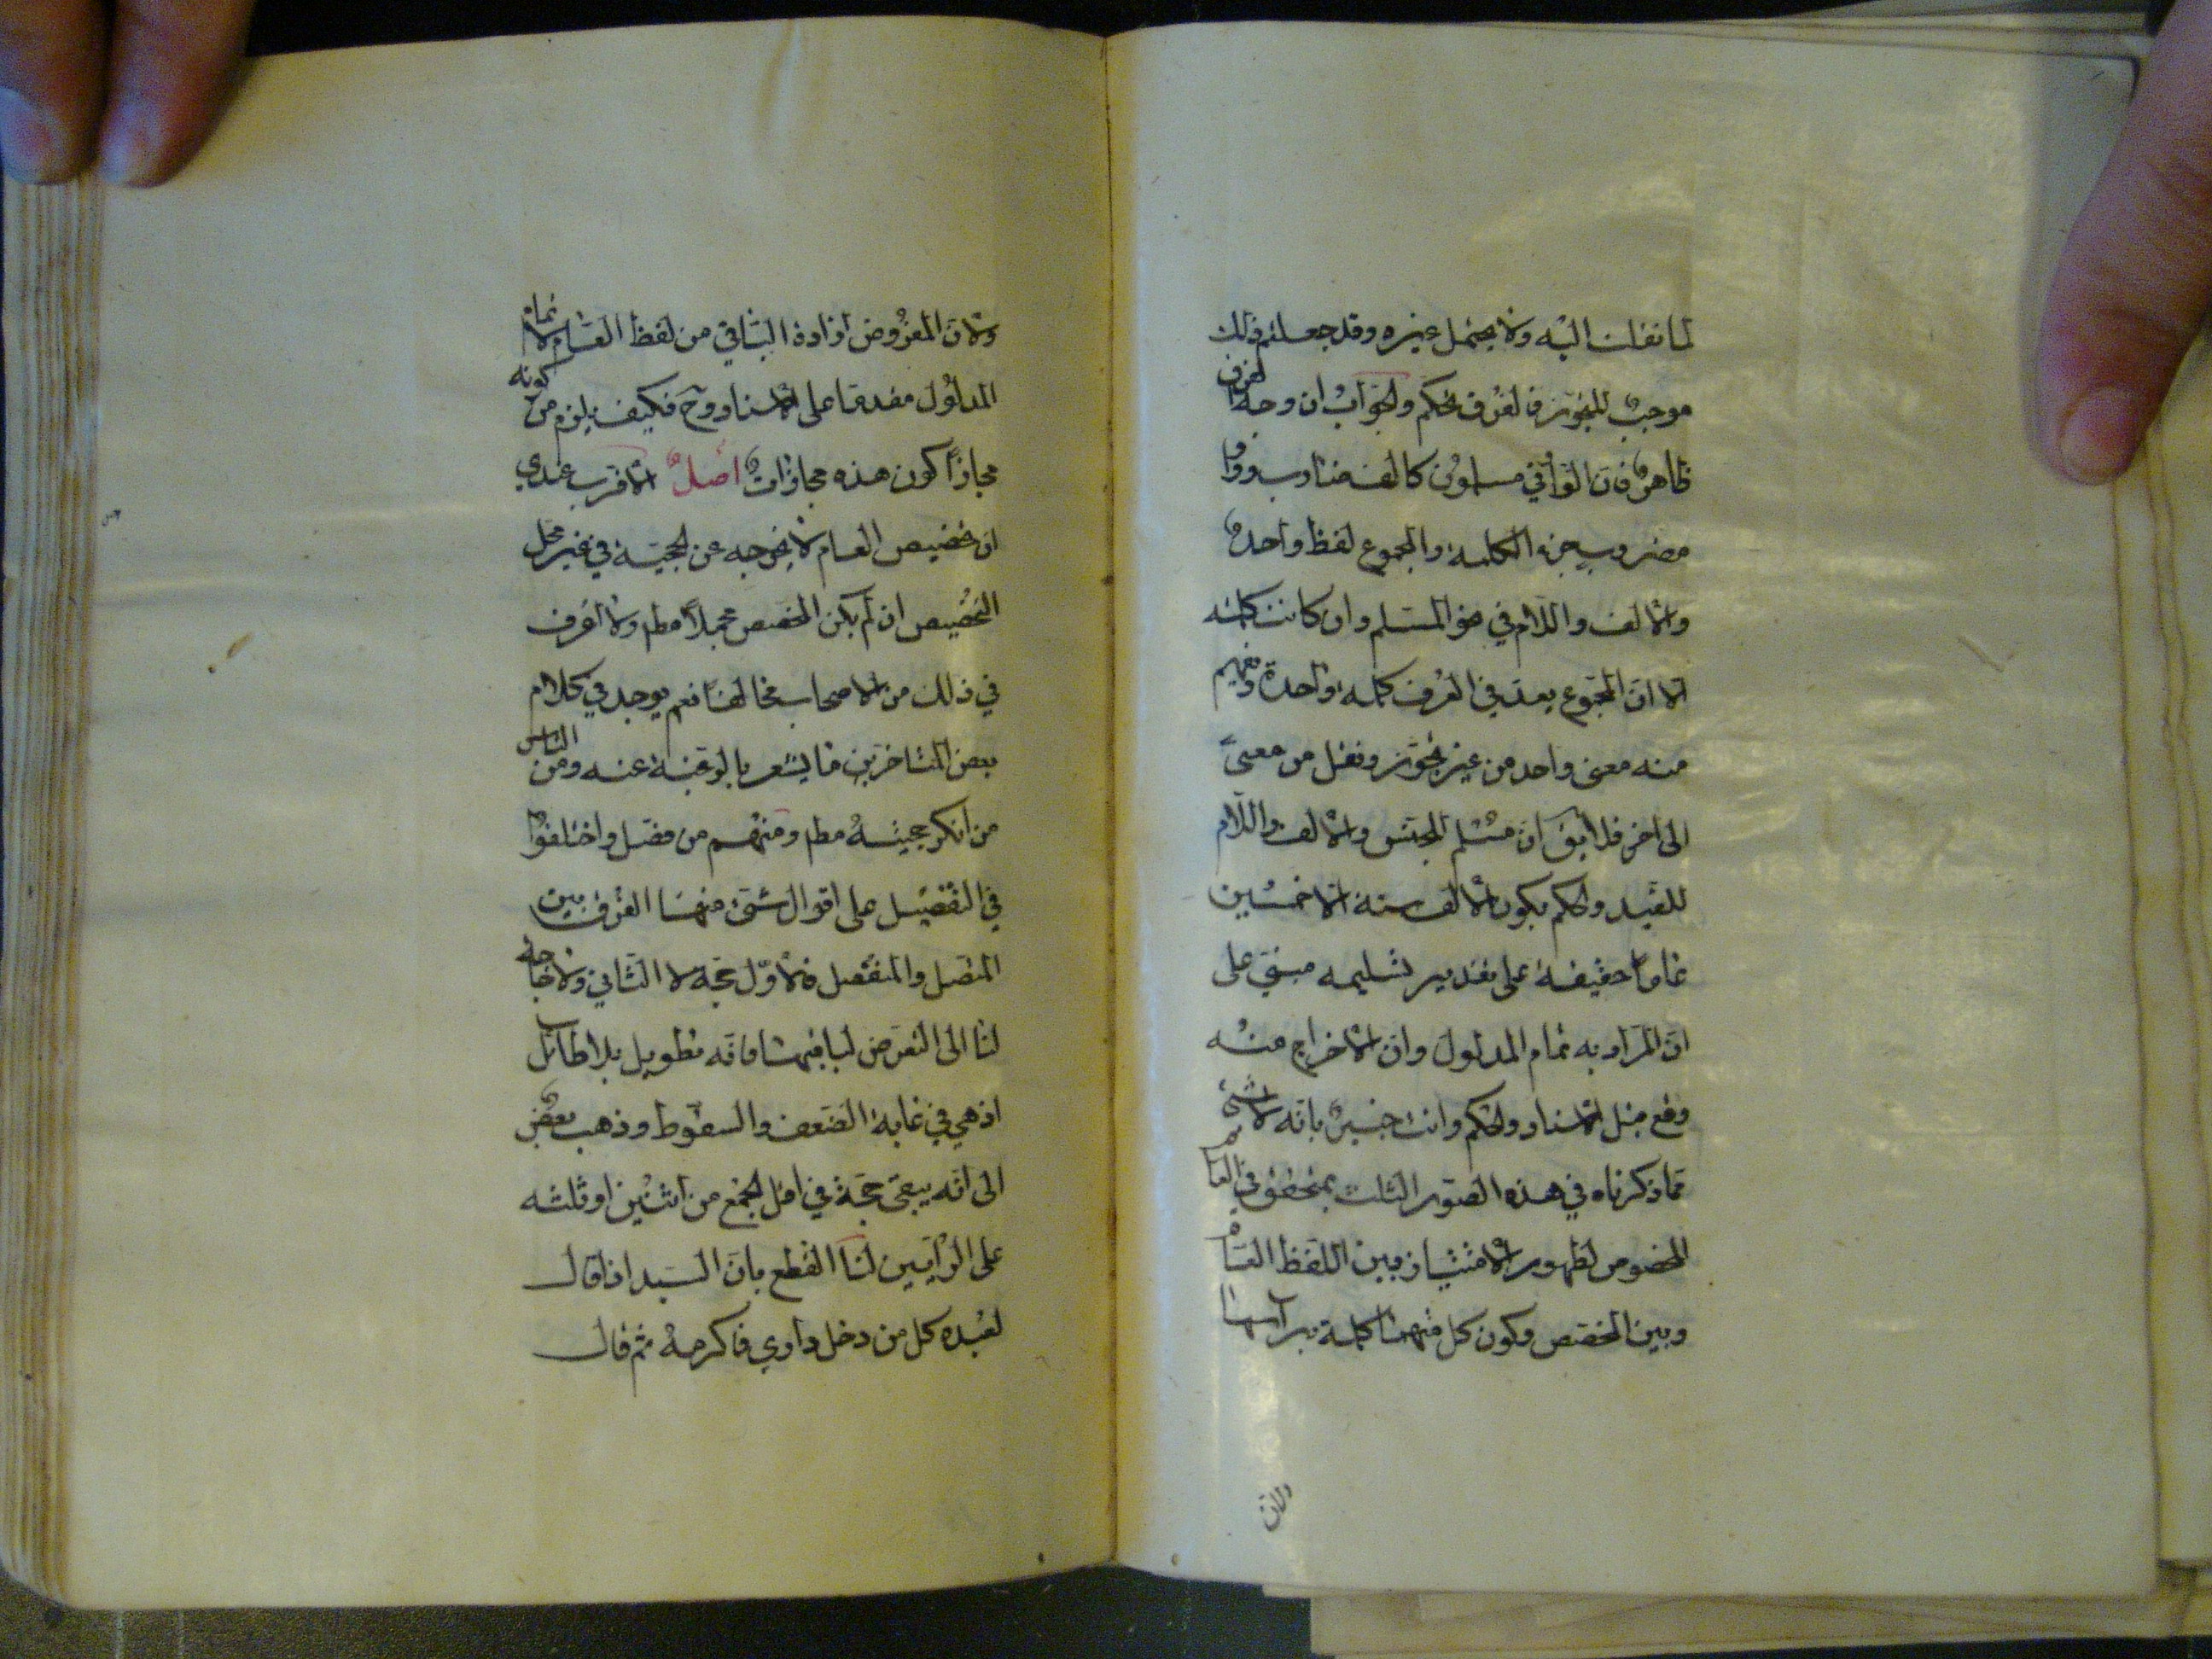 لما نقلت اليه ولا يحتمل غيره وقد جعلتم ذلك
موجبا للتجوز فالفرق تحكم والجواب ان وجه الفرق
ظاهر فان الواو في مسلمون كالف ضارب وواو
مضروب جزء الكلمة والمجموع لفظ واحد
والالف واللام في نحو المسلم وان كانت كلمة
الا ان المجموع يعد في العرف كلمة واحدة ويفهم
منه معنى واحد من غير تجوز ونقل من معنى
الى اخر فلا يق ان مسلم للجنس والالف واللام
للقيد والحكم بكون الالف سنة الا خمسين
عاما حقيقة على تقدير تسليمه مبني على
ان المراد به تمام المدلول وان الاخراج منه
وقع قبل الاسناد والحكم وانت خبير بانه لا شئ
مما ذكرناه في هذه الصور الثلث بمتحقق في العام
المخصوص لظهور الامتياز بين اللفظ العام
وبين المخصص وكون كل منهما كلمة برأسها
ولان
ولان المفروض ارادة الباقي من لفظ العام لا تمام
المدلول مقدما على الاسناد وح فكيف يلزم من كونه
مجازا كون هذه مجازات اصل الاقرب عندي
ان تخصيص العام لا يخرجه عن الحجية في غير محل
التخصيص ان لم يكن المخصص مجملا مطم ولا اعرف
في ذلك من الاصحاب مخالفا نعم يوجد في كلام
بعض المتاخرين ما يشعر بالرغبة عنه ومن الناس
من انكر حجيته مطم ومنهم من فصل واختلفوا
في التفصيل على اقوال شتى منها الفرق بين
المتصل والمنفصل فالاول حجة لا الثاني ولا حاجة
لنا الى التعرض لباقيها فانه تطويل بلا طائل
اذ هي في غاية الضعف والسقوط وذهب بعض
الى انه يبقى حجة في اقل الجمع من اثنين او ثلثة
على الرأيين لنا القطع بان السيد اذا قال
لعبده كل من دخل داري فاكرمه ثم قال